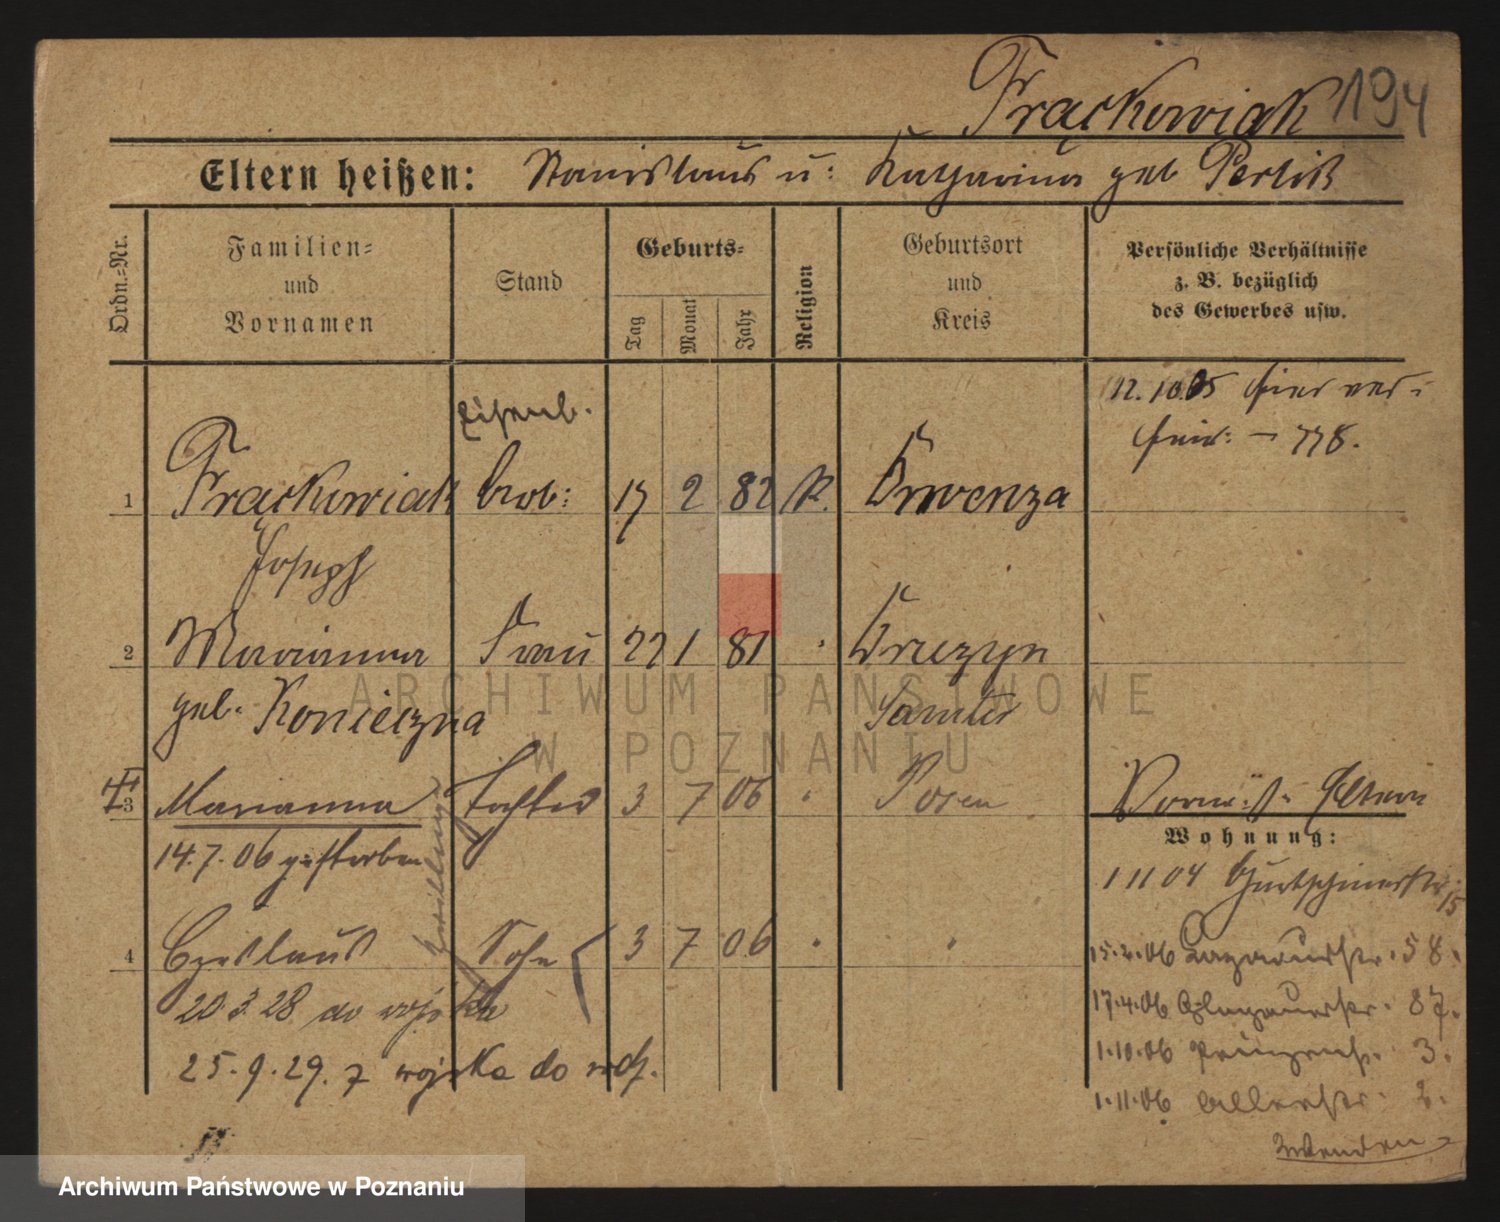 Frąckowiak 194
Eltern heißen: Stanislaus u: Katharina geb Perlik
Ordn.-Nr.
Familien-
und
Vornamen
Stand
Geburts-
Tag
Monat
Jahr
Religion
Geburtsort
und
Kreis
Persönliche Verhältnisse
z. B. bezüglich
des Gewerbes usw.
12.10.05 hier ver-
heir: – 778.
Eisenb.
1 Frąckowiak Arb: 17 2 82 K.
Joseph
2 Marianna Frau 22 1 81
geb. Konieczna Samter
3 Marianna Tochter 3 7 06 " Posen
Eltern
14.7.06 gestorben
Zwillinge
Wohnung:
1 11 04 15
4 Czeslaus Sohn 3 7 06 " "
15.2.06 Lazarusstr. 58.
20.3.28 do wojska
17.4.06 Glogauerstr. 87.
25.9.29. z wojska do rodz.
1.10.06 Prinzenstr. 3.
1.11.06 2.
Wenden
ARCHIWUM PAŃSTWOWE
W POZNANIU
Archiwum Państwowe w Poznaniu